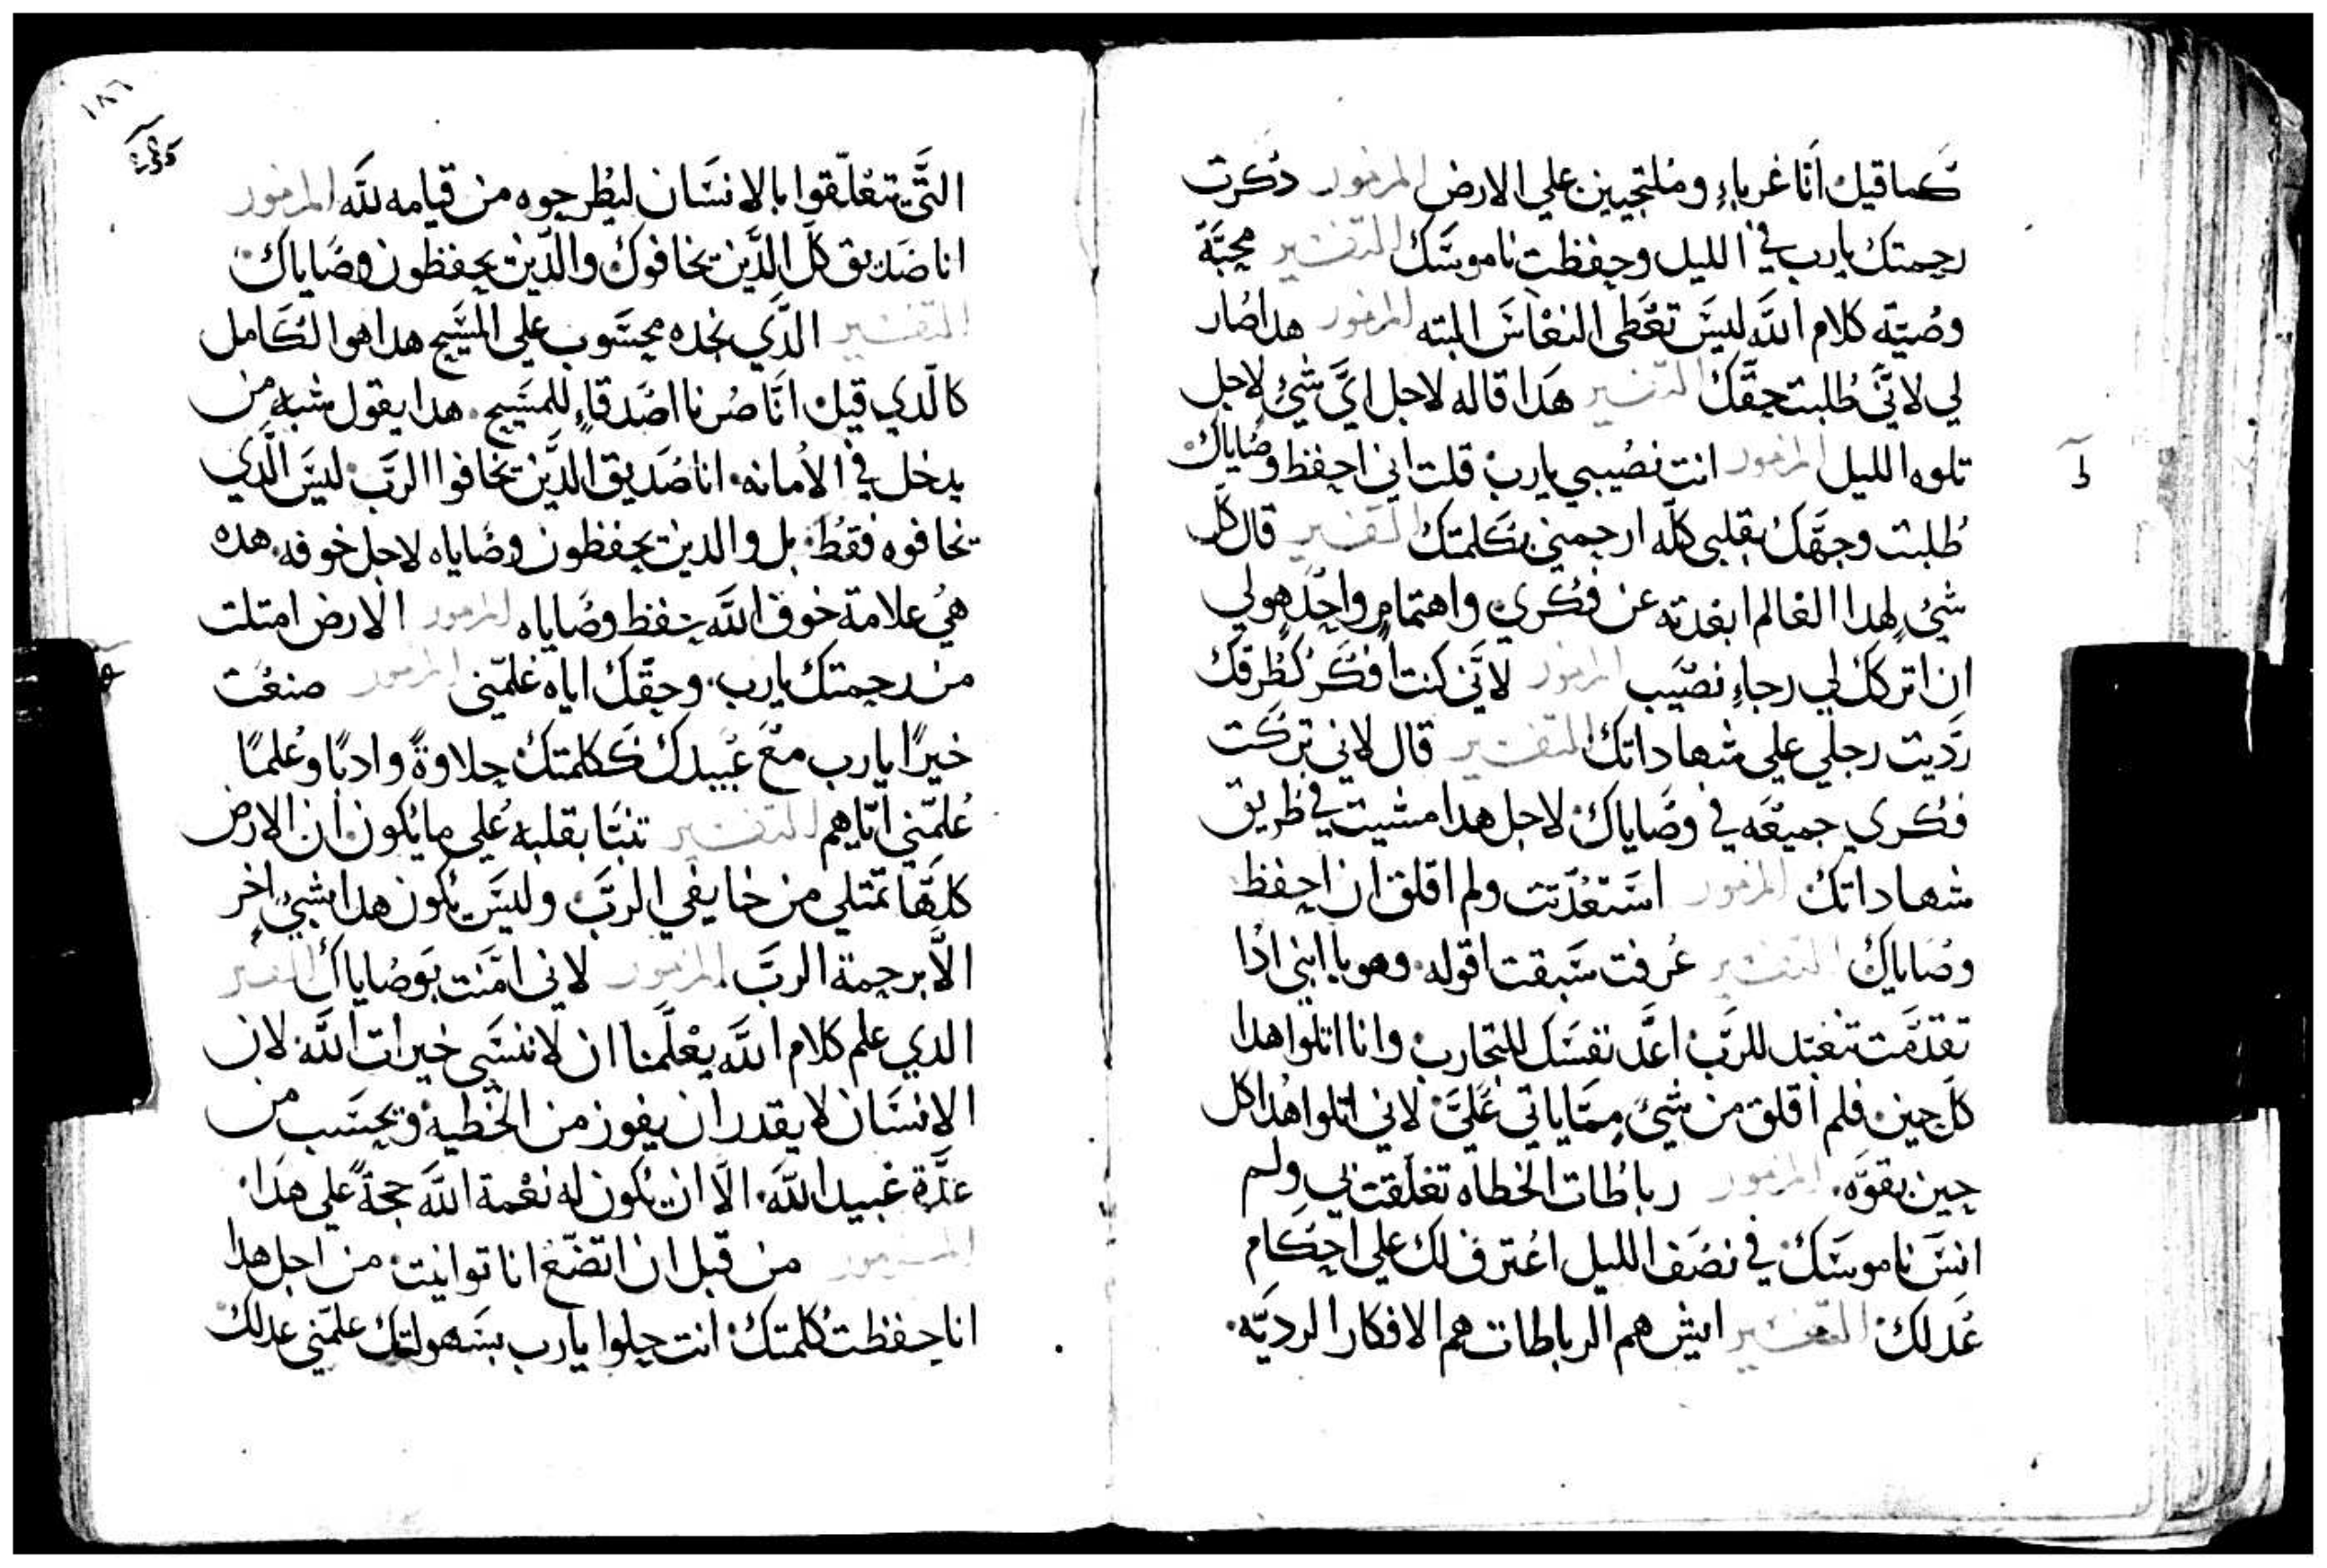 كما قيل انّا غرباءٍ وملتجيين علي الارض المزمور دكرت
رحمتك يارب في الليل وحفظت ناموسك التفسير محبّة
وصيّة كلام اللّه ليس تعطى النعاس البته المزمور هدا صار
لي لانّى طلبت حقّك التفسير هدا قاله لاجل ايّ شيٍ لاجل
تلوه الليل المزمور انت نصيبي يارب قلت اني احفظ وصاياك
طلبت وجهّك بقلبي كلّه ارحمني بكلمتك التفسير قال كل
شيٍ لهدا العالم ابعدته عن فكري واهتمامٍ واحدٍ هو لي
ان اتركك لي رجاءٍ نصيب المزمور لانّي كنت افكر طرقك
ردّيت رجلي علي شهاداتك التفسير قال لاني تركت
فكري جميعه في وصّاياك لاجل هدا مشيت في طريق
شهاداتك المزمور استعدّيت ولم اقلق ان احفظ
وصاياك التفسير عرفت سبقت اقوله وهو يا ابني ادا
تقدّمت تتعبّد للربّ اعدّ نفسك للتجارب وانا اتلوا هدا
كل حين فلم اقلق من شيٍ ممّا ياتي عليّ لاني اتلوا هدا كل
حين بقوّه المزمور رباطات الخطاه تعلّقت بي ولم
انس ناموسك في نصف الليل اعترف لك علي احكام
عدلك التفسير ايش هم الرباطات هم الافكار الرديّه
١٨٦
التّي تتعلّقوا بالانسان ليطرحوه من قيامه للّه المزمور
انا صديق كلّ الدّين يخافوك والدّين يحفظون وصاياك
التفسير الدّي نجده محسوب علي المسيح هدا هو الكامل
كالّدي قيل انّا صرنا اصدقاءٍ للمسيح هدا يقول شبه من
يدخل في الأمانه انا صديق الدّين يخافوا الربّ ليس الّدي
يخافوه فقط بل والدين يحفظون وصاياه لاجل خوفه هده
هي علامة خوف اللّه يحفظ وصاياه المزمور الارض امتلت
من رحمتك يارب وحقّك اياه علّمني المزمور صنعت
خيرًا يارب مع عبيدك ككلمتك حلاوةً وادبًا وعلمًا
علّمني ايّاهم التفسير تنبّا بقلبه علي ما يكون ان الارض
كلّها تمتلي من خايفي الربّ وليس يكون هدا بشيٍ اخر
الّا برحمة الربّ المزمور لاني امّنت بوصاياك التفسير
الدي علم كلام اللّه يعلّمنا ان لا ننسى خيرات اللّه لان
الانسان لا يقدر ان يفوز من الخطية ويحسب من
عدّة عبيد اللّه الّا ان يكون له نعمة اللّه حجةً علي هدا
المزمور من قبل ان اتضع انا توانيت من اجل هدا
انا حفظت كلمتك انت حلوا يارب بسهولتك علمّني عدلك